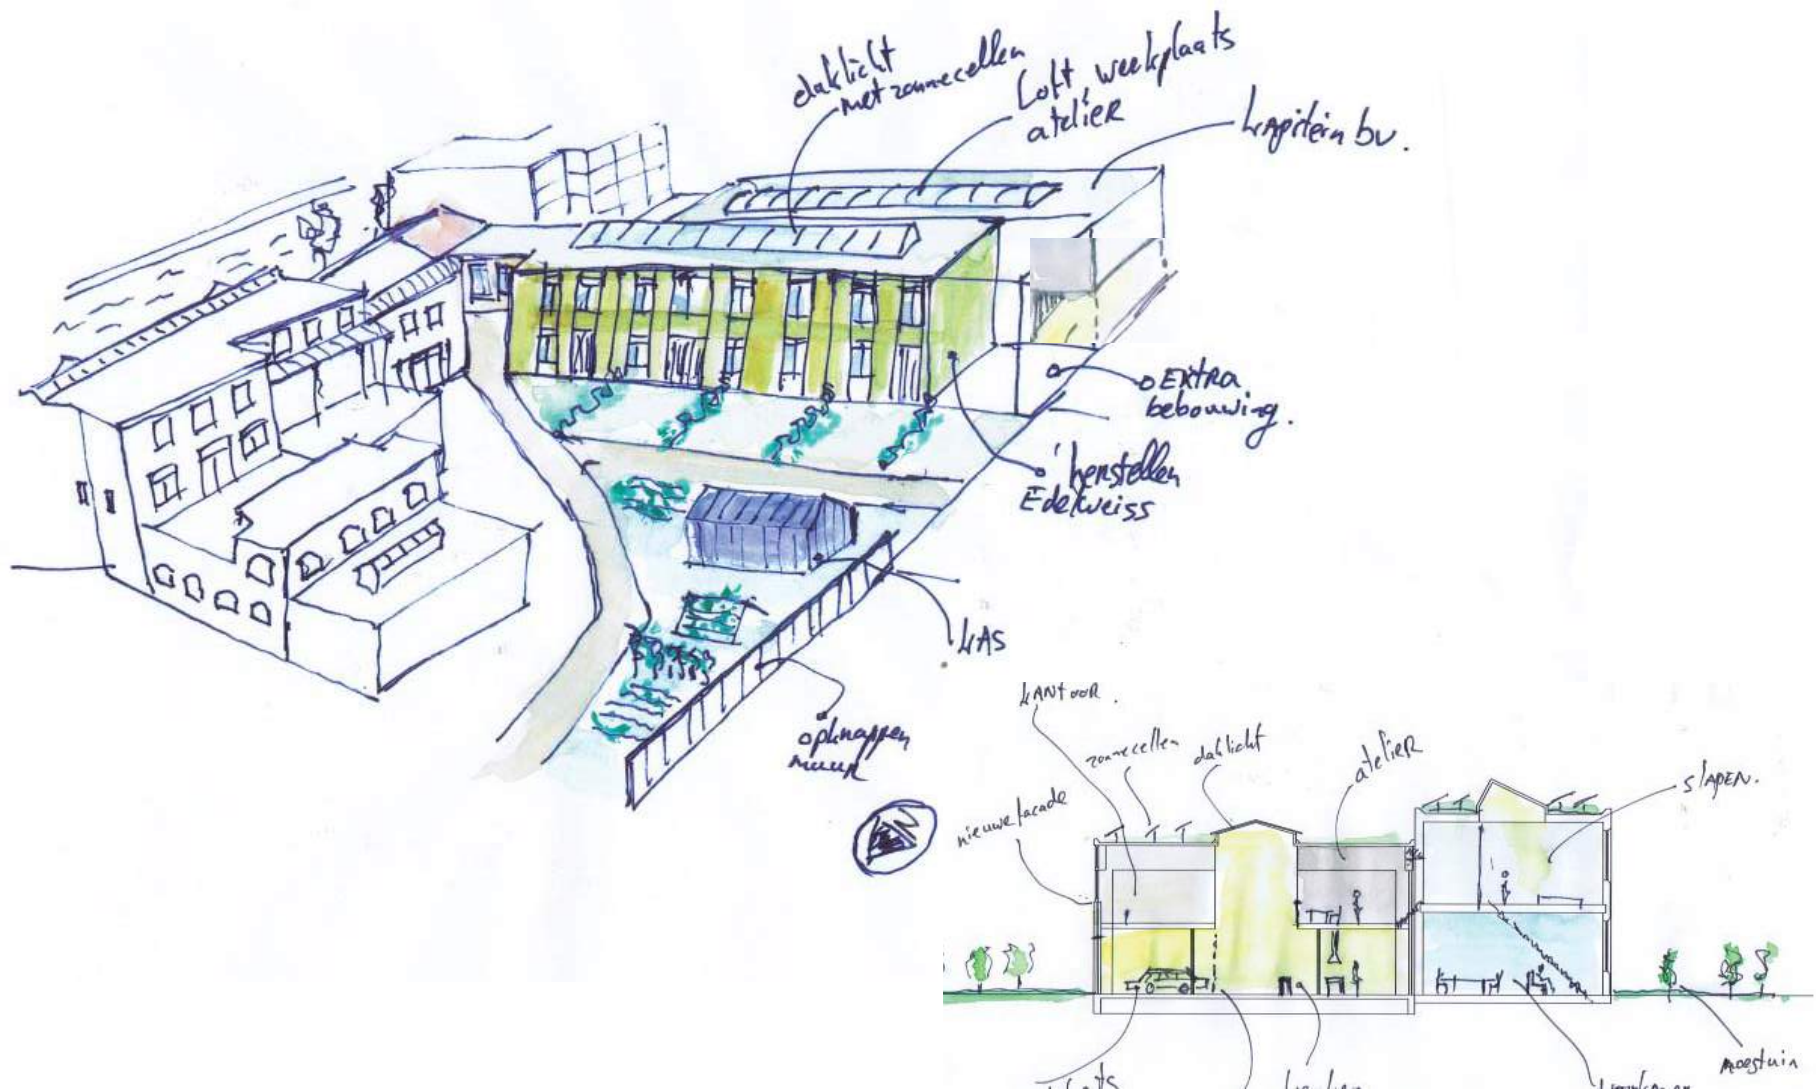 daklicht
met zonnecellen
Loft, werkplaats
atelier
Kapitein bv.
EXTRA
bebouwing.
herstellen
Edelweiss
KAS
opknappen
muur
KANTOOR.
zonnecellen
daklicht
atelier
slapen.
nieuwe facade
moestuin